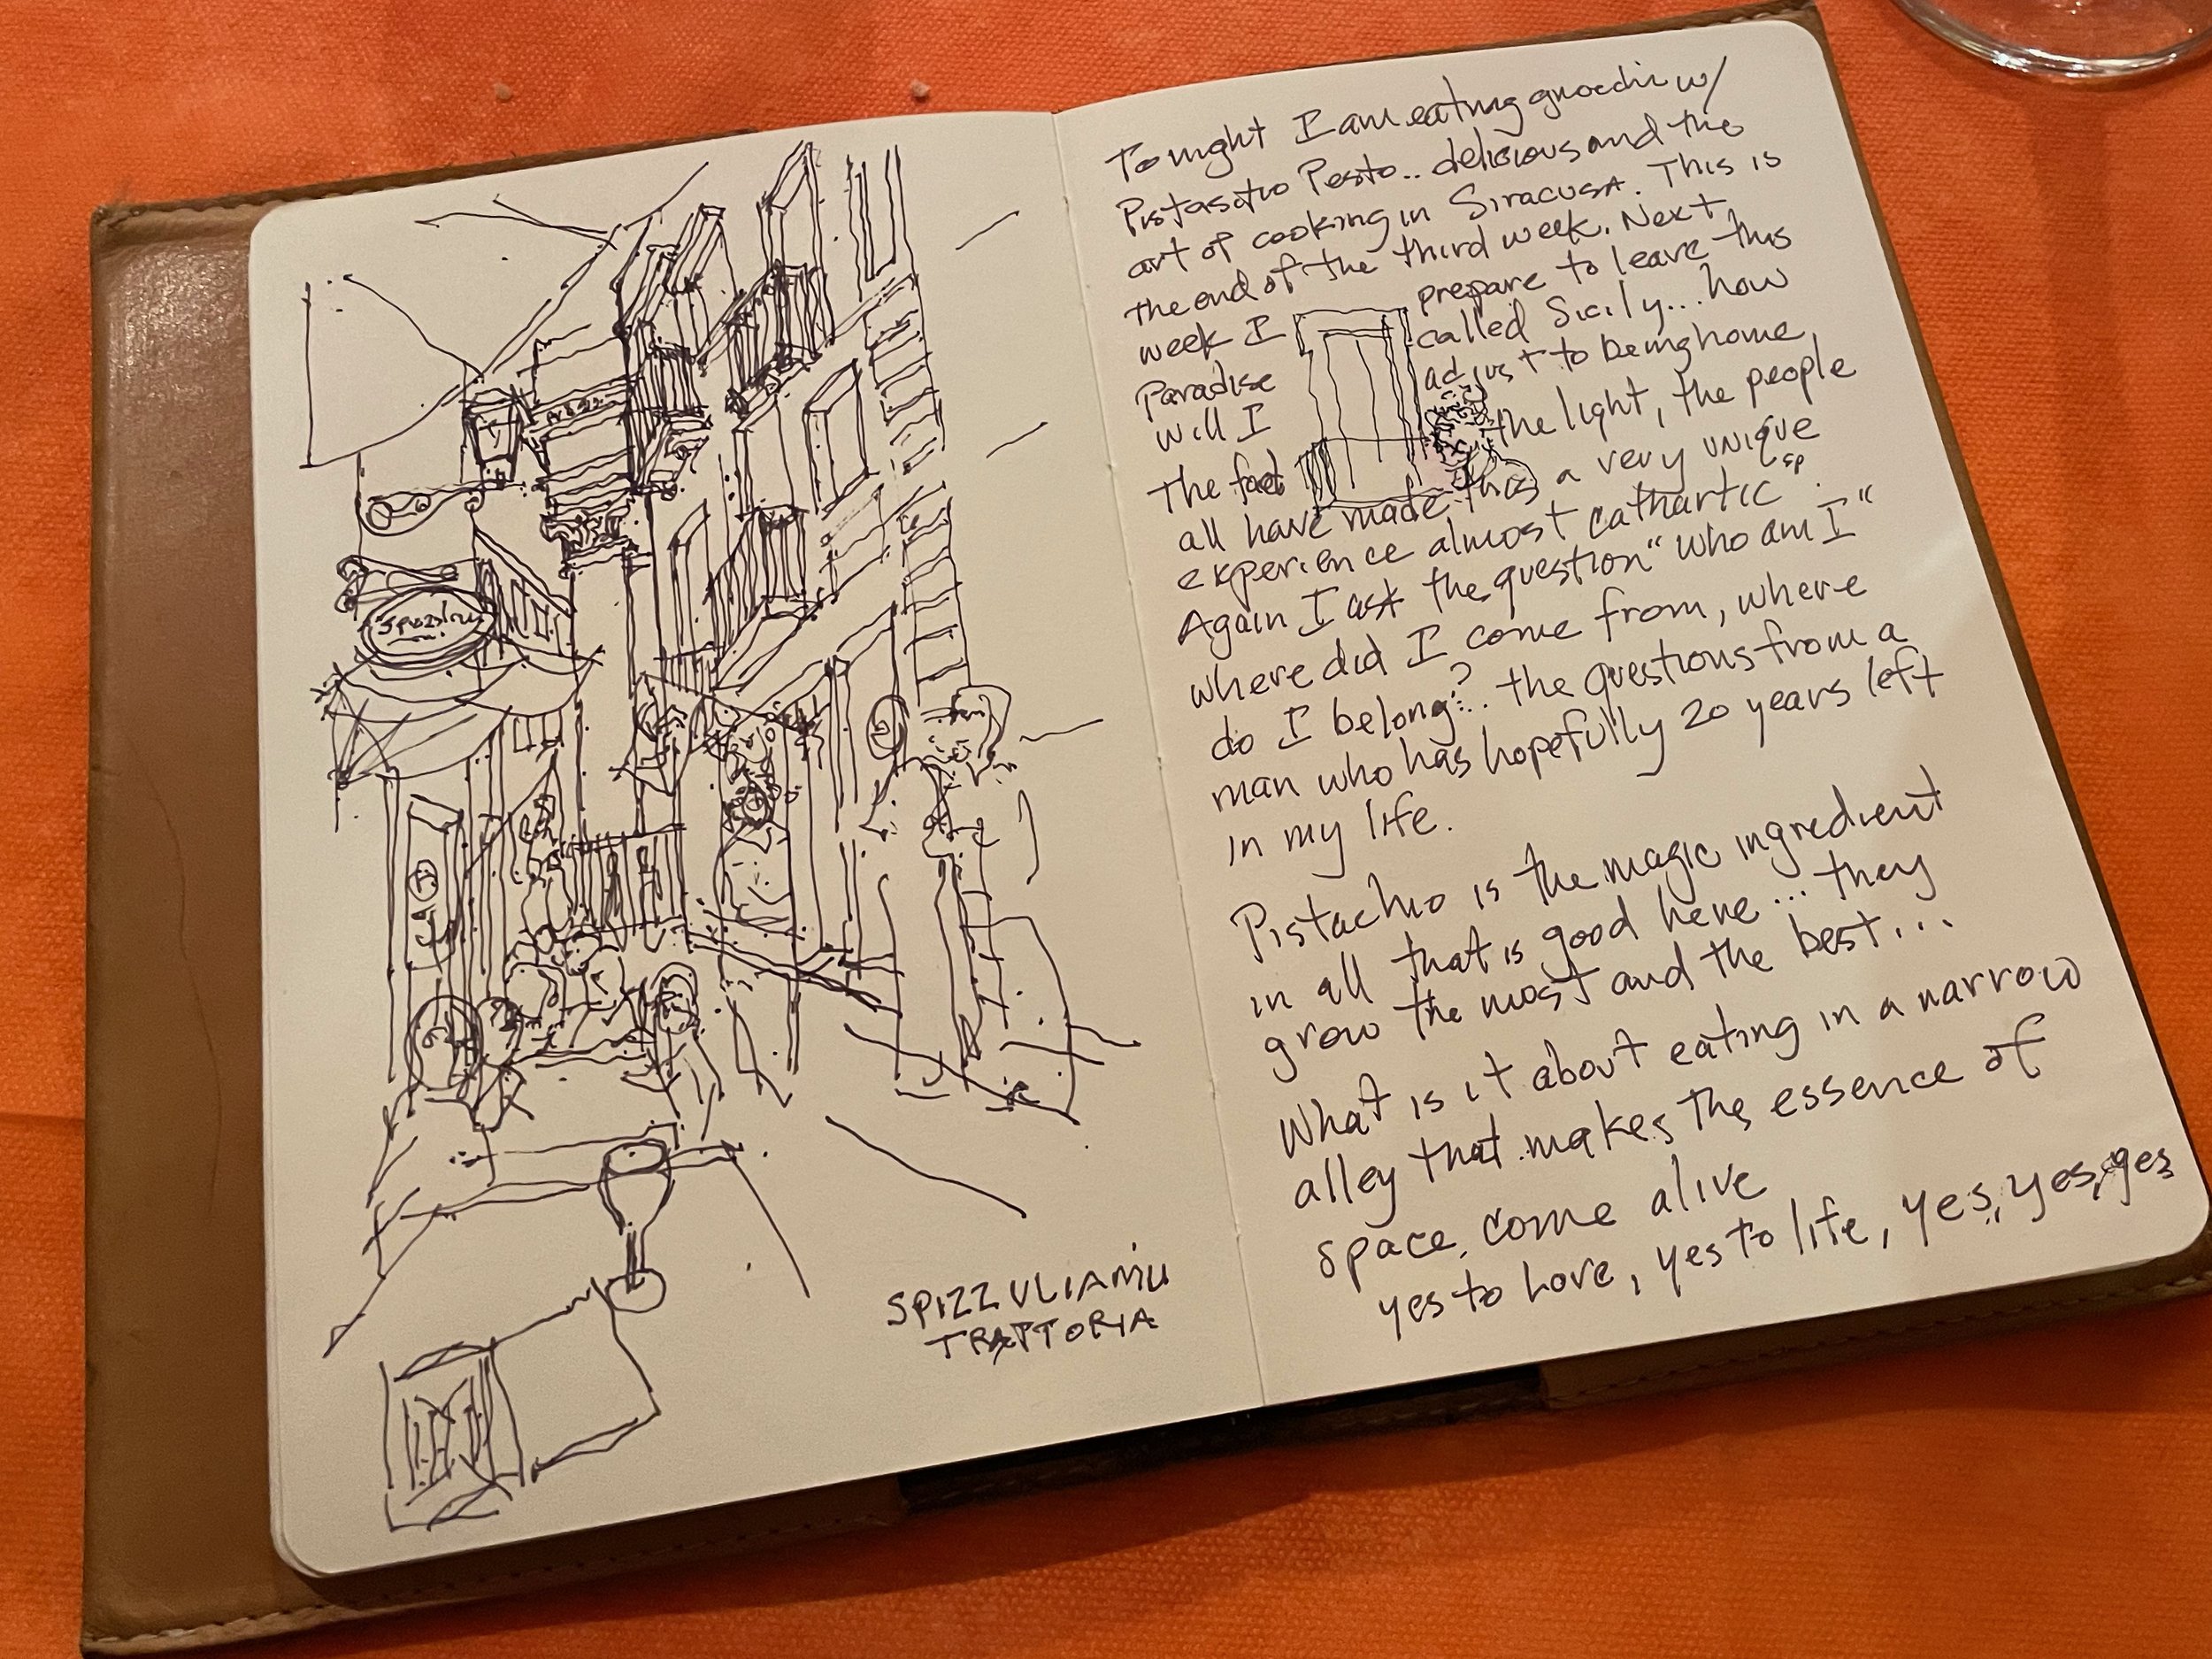 SPIZZULIAMU
TRATTORIA
Tonight I am eating gnocchi w/
Pistastio Pesto.. delicious and the
art of cooking in Siracusa. This is
the end of the third week. Next
week I prepare to leave this
Paradise called Sicily... how
will I adjust to being home
The food the light, the people
all have made this a very unique
experience almost cathartic sp.
Again I ask the question "who am I"
where did I come from, where
do I belong?.. the questions from a
man who has hopefully 20 years left
in my life.
Pistachio is the magic ingredient
in all that is good here... they
grow the most and the best...
What is it about eating in a narrow
alley that makes the essence of
space come alive
yes to Love, yes to life, yes, yes, yes